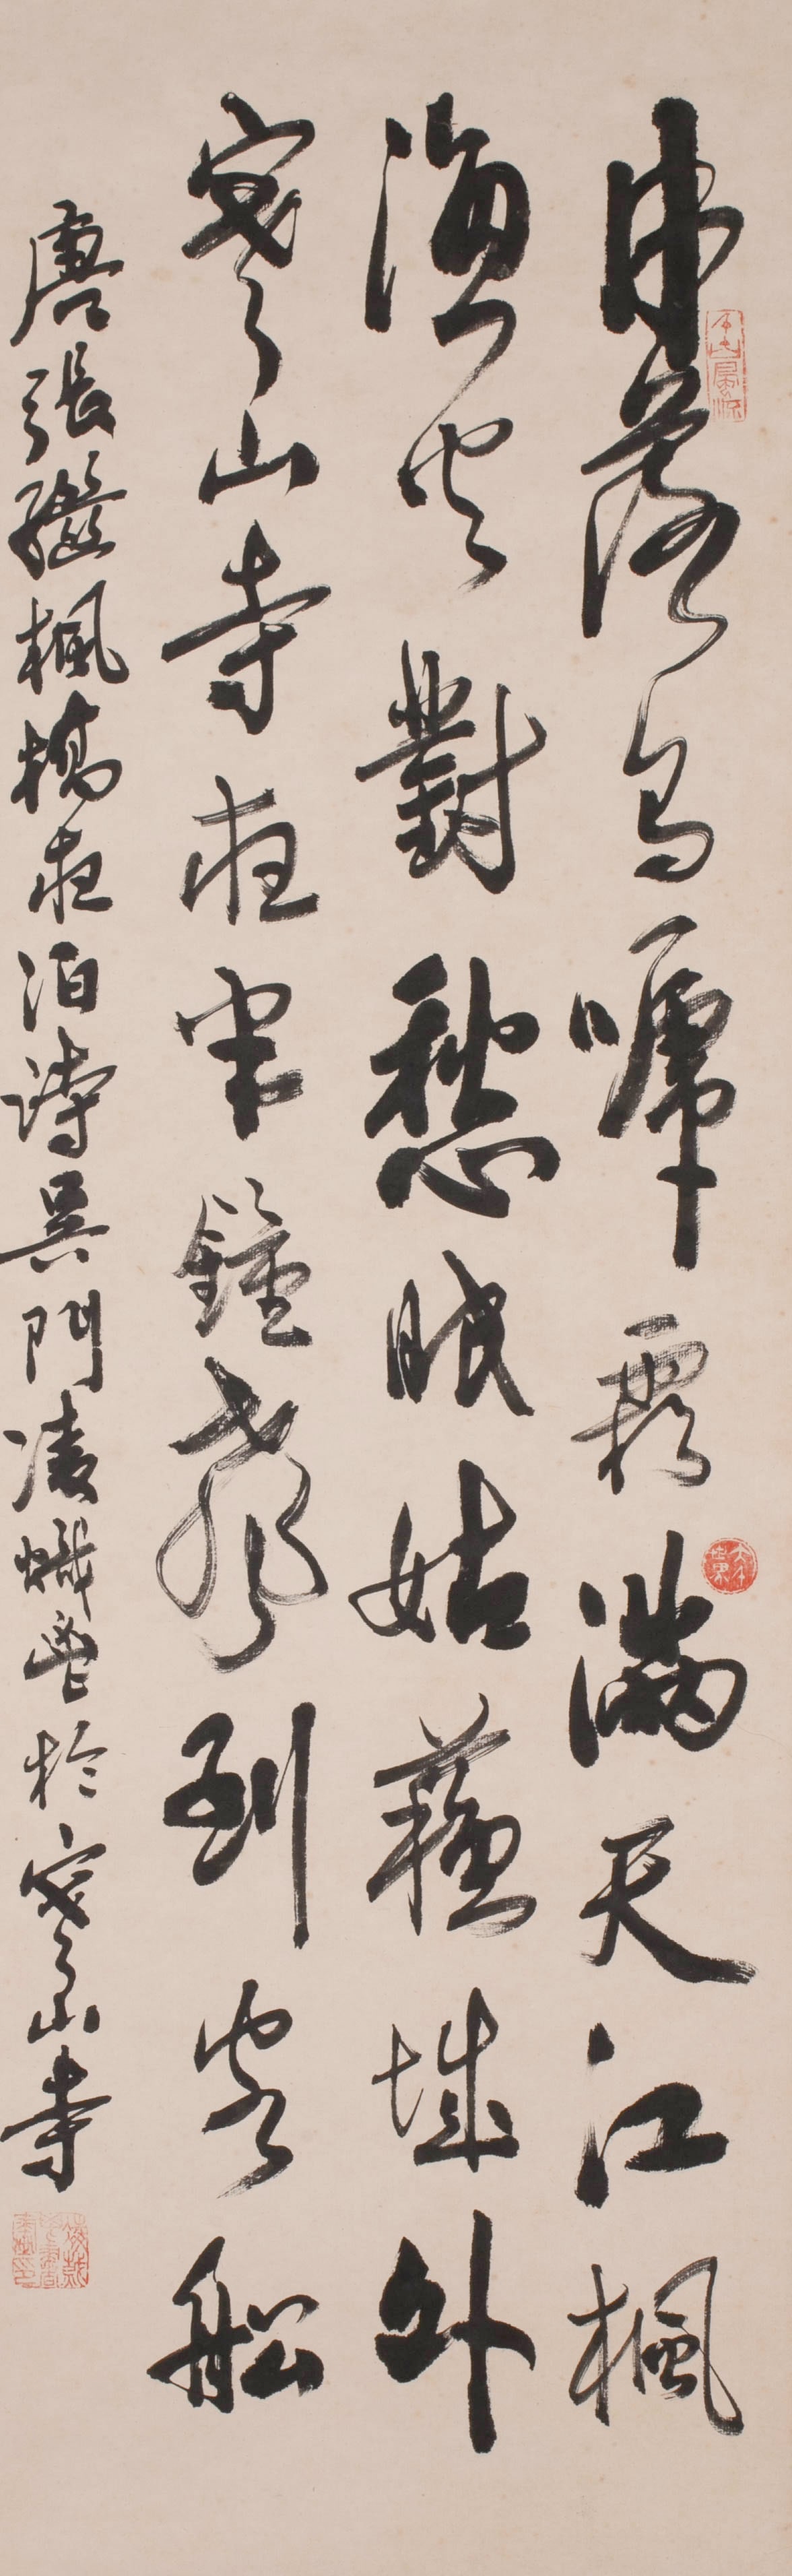 月落烏啼霜滿天江楓
漁火對愁眠姑蘇城外
寒山寺夜半鐘聲到客船
唐張繼楓橋夜泊詩吳門凌熾書於寒山寺